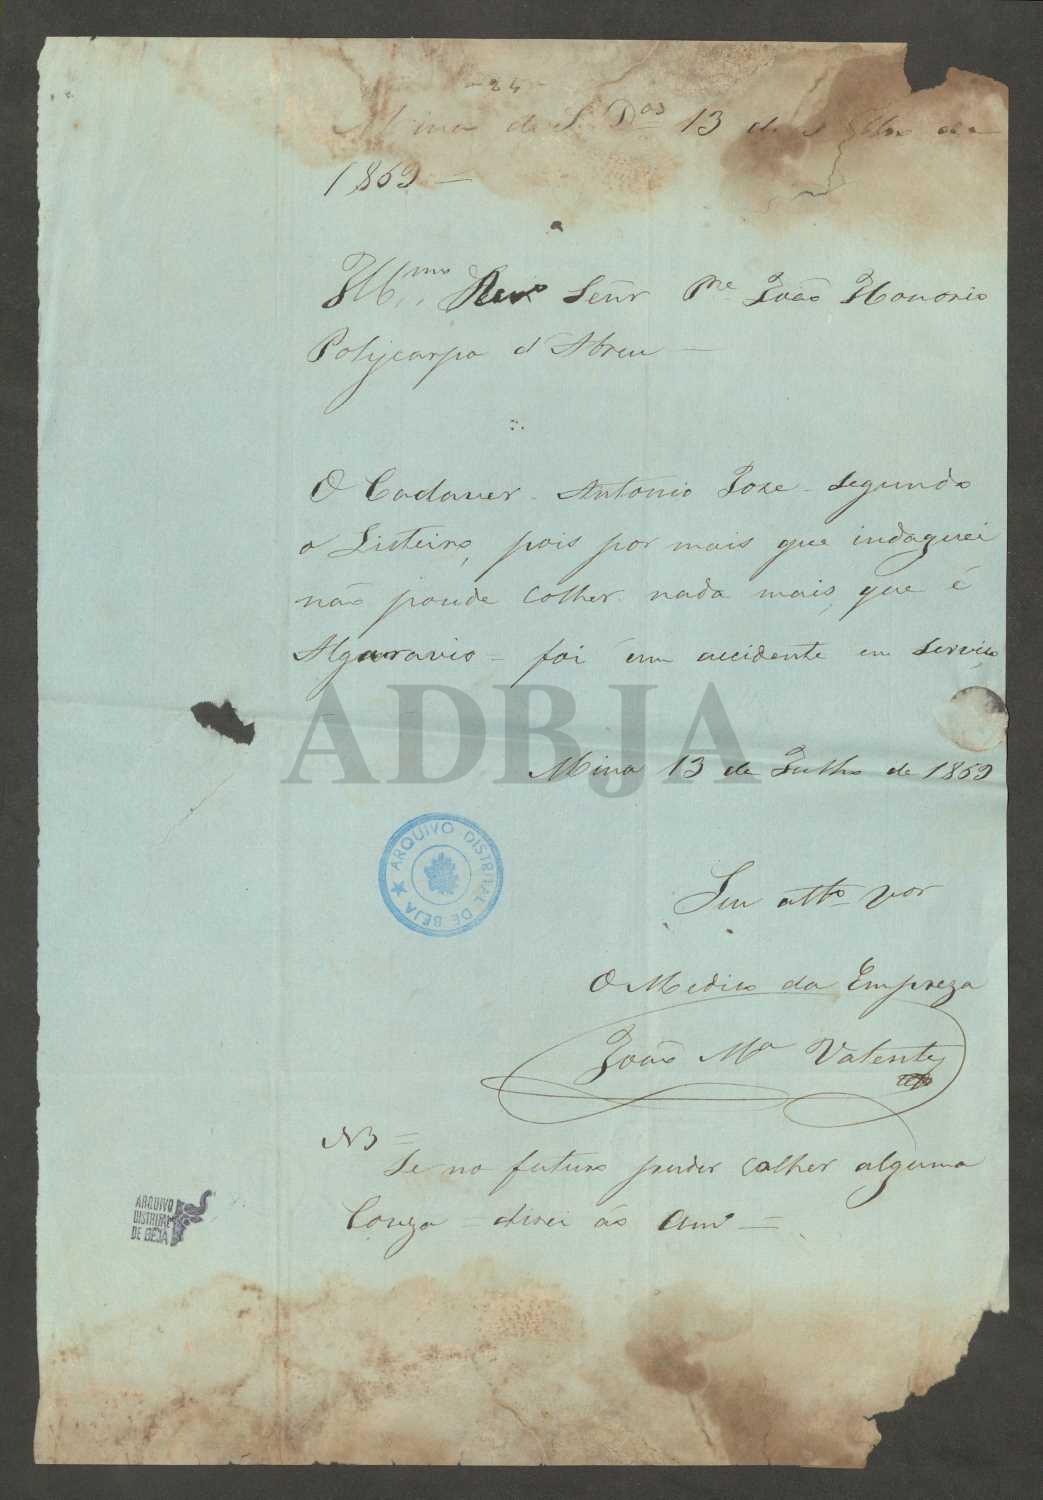 -24-
Mina de S. Dos 13 de Julho de
1869 —
Illmo. Revo Señr Pre João Honorio
Polycarpo d'Abreu —
O Cadaver - Antonio Joze - segundo
o Listeiro, pois por mais que indaguei
não poude colher nada mais, que é
Algaravio - foi em accidente em serviço
Mina 13 de Julho de 1869
Seu atto vor
O Medico da Empreza
João Ma Valente
NB =
Se no futuro puder colher alguma
Couza - direi ao Amo =
ARQUIVO DISTRITAL DE BEJA
ARQUIVO
DISTRITAL
DE BEJA
ADBJA